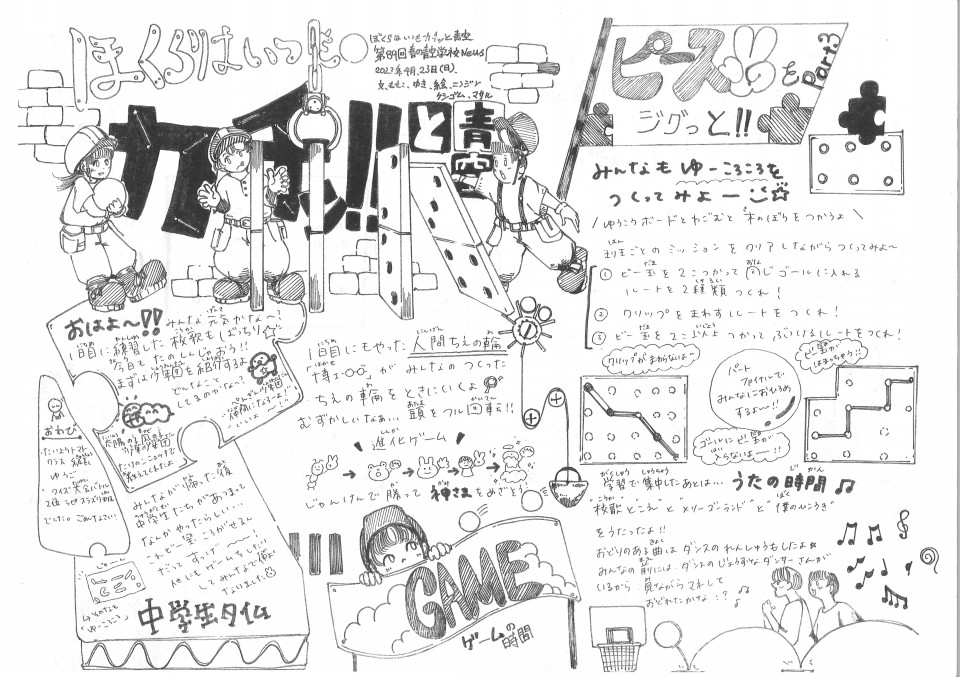 ぼくらはいつも
ガチッ!!と青空
ぼくらはいつもガチッと青空
第89回春の青空学校News
2023年4月23日(日)
文.ももこ、ゆき.絵.ニンジン
ケシゴム、マサル
ピースを
ジグっと!!
Part.3
みんなもゆーころころを
つくってみよー
ゆうこうボードとわごむと木のぼうをつかうよ
班ごとのミッションをクリアしながらつくってみよ〜
① ビー玉を2こつかって同じゴールに入れる
ルートを2種類つくれ!
② クリップをまわすルートをつくれ!
③ ビー玉を2こ以上つかってぶつけるルートをつくれ!
クリップがまわらない〜
パート
ファイナルで
みんなにおひろめ
するよ〜!!
ビー玉が
はまっちゃう!!
ゴールにビー玉が
入らない〜!!
おはよ〜!!
みんな元気かな?
1日目に練習した校歌もばっちり☆
今日もたのしんじゃおう!!
まずは分団を紹介するよ
どんなことを
してるのかな?
おわび
1日目にもやった人間ちえの輪
"博士"が みんなのつくった
ちえの輪をときにいくよ
むずかしいなぁ… 頭をフル回転!!
進化ゲーム
じゃんけんで勝って神さまをめざそう!
みんなが帰った後
中学生たちがあつまって
なんかやったらしい…
これビー玉ころがせるん
だって すっげ〜〜!
他にもゲームをしたり
してみんなで仲よく
なりました
中学生タイム
GAME
ゲームの時間
学習で集中したあとは… うたの時間
校歌とこえと"メリーゴーランド"と"僕のひこうき"
をうたったよ!!
おどりのある曲はダンスのれんしゅうもしたよ
みんなの前には、ダンスのじょうずなダンサーさんが
いるから 見ながらマネして
おどれたかな!?